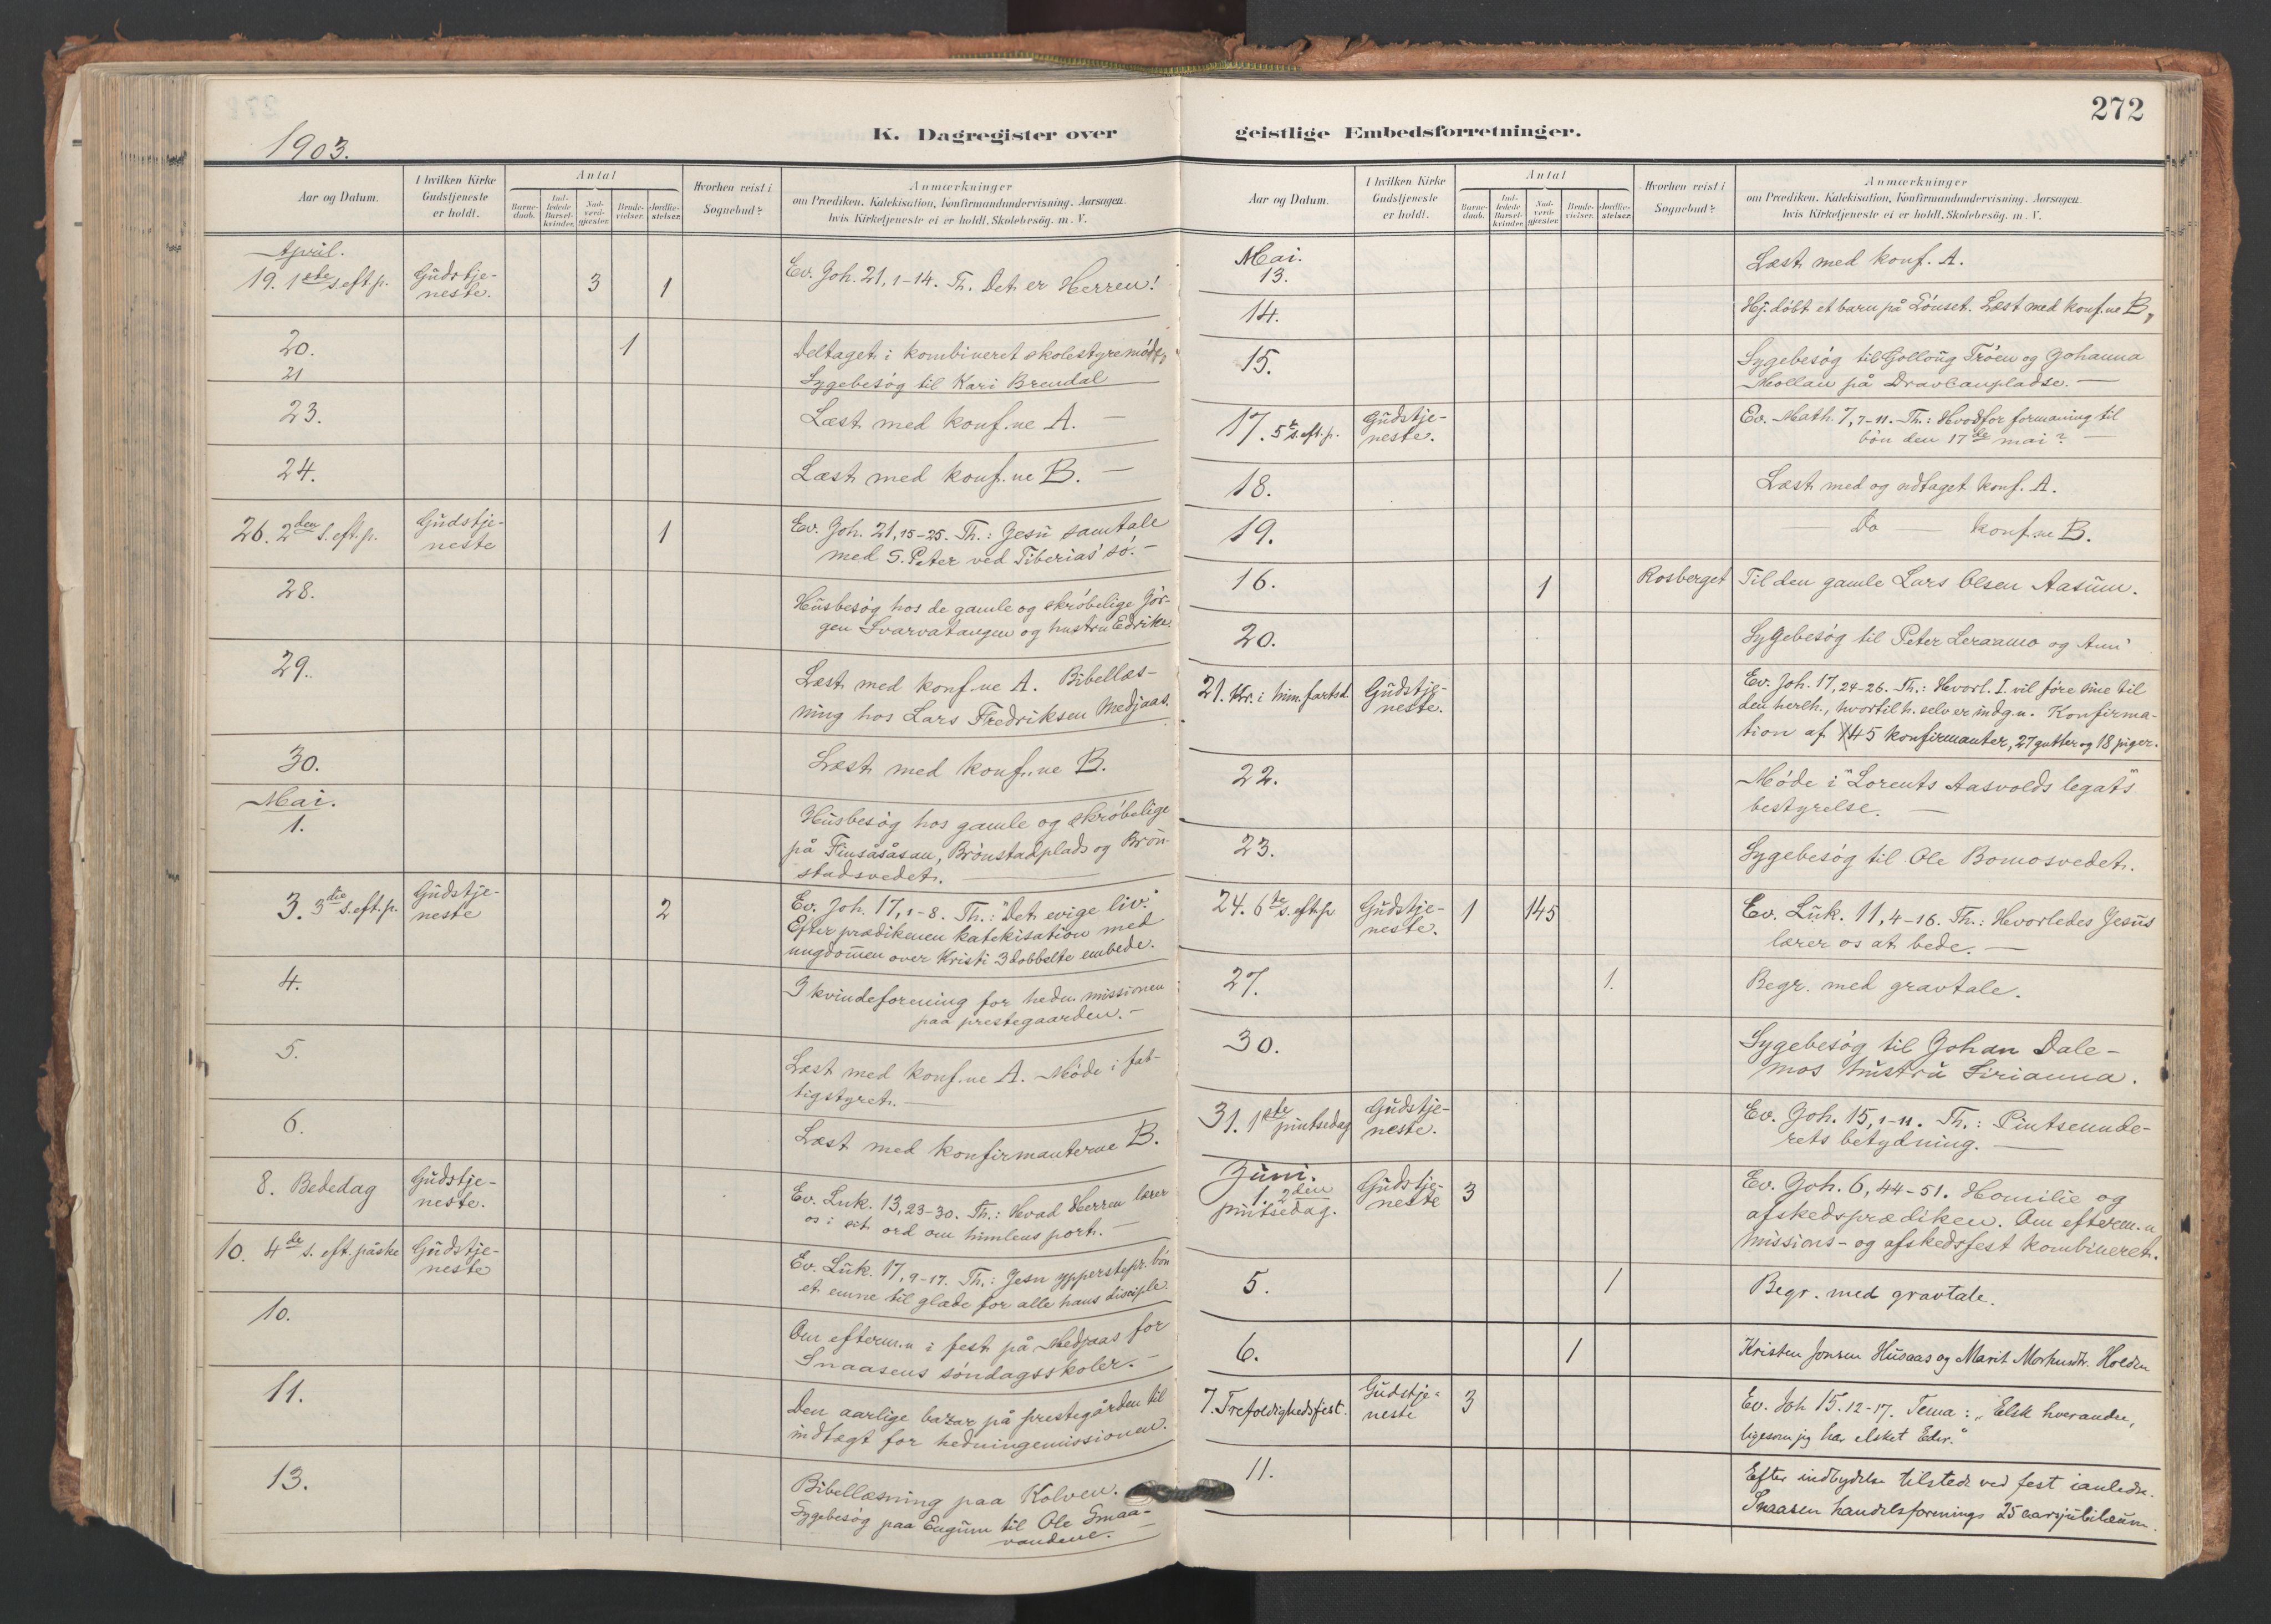 1903.
K. Dagregister over
Aar og Datum.
I hvilken Kirke Gudstjeneste er holdt.
Antal
Barnedaab.
Indledede Barselkvinder.
Nadverdgjester.
Brudevielser.
Jordfæstelser.
Hvorhen reist i Sognebud?
Anmærkninger
om Prædiken, Katekisation, Konfirmandundervisning. Aarsagen,
hvis Kirketjeneste ei er holdt, Skolebesög. m. V.
April.
19. 1ste s. eft. p. Gudstjeneste. 3 1 Ev. Joh. 21, 1-14. Th. Det er Herren!
20. 1 Deltaget i kombineret skolestyremöde,
21 Sygebesög til Kari Brendal
23. Læst med konf.ne A. —
24. Læst med konf.ne B. —
26. 2den s. eft. p. Gudstjeneste 1 Ev. Joh. 21, 15-25. Th.: Jesu samtale
med S. Peter ved Tiberias' sö. —
28. Husbesög hos de gamle og skröbelige Jör-
gen Svarvatangen og hustru Edrika.
29. Læst med konf.ne A. Bibellæs-
ning hos Lars Fredriksen Medjaas.
30. Læst med konf.ne B.
Mai.
1. Husbesög hos gamle og skröbelige
på Finsåsåsan, Brönstadplads og Brön-
stadsvedet. —
3. 3die s. eft. p. Gudstjeneste 2 Ev. Joh. 17, 1-8. Th.: "Det evige liv."
Efter prædikenen katekisation med
ungdommen over Kristi 3dobbelte embede.
4. I kvindeforening for hedn. missionen
paa prestegaarden. —
5. Læst med konf.ne A. Möde i fat-
tigstyret. —
6. Læst med konfirmanterne B.
8. Bededag Gudstjeneste. Ev. Luk. 13, 23-30. Th.: Hvad Herren lærer
os i sit ord om himlens port. —
10. 4de s. eft. påske Gudstjeneste Ev. Luk. 17, 9-17. Th.: Jesu ypperstepr. bön
et emne til glæde for alle hans disciple.
10. Om efterm.n i fest på Medjaas for
Snaasens söndagsskoler. —
11. Den aarlige bazar på prestegården til
indtægt for hedningemissionen.
13. Bibellæsning paa Kolven.
Sygebesög paa Engum til Ole Smaa-
vandene.
272
geistlige Embedsforretninger.
Aar og Datum.
I hvilken Kirke Gudstjeneste er holdt.
Antal
Barnedaab.
Indledede Barselkvinder.
Nadverdgjester.
Brudevielser.
Jordfæstelser.
Hvorhen reist i Sognebud?
Anmærkninger
om Prædiken, Katekisation, Konfirmandundervisning. Aarsagen,
hvis Kirketjeneste ei er holdt, Skolebesög. m. V.
Mai.
13. Læst med konf. A.
14. Hj. döbt et barn på Lönset. Læst med konf.ne B.
15. Sygebesög til Tröen og Johanna
Mollan på Dravlanpladse. —
17. 5te s. eft. p. Gudstjeneste. Ev. Math. 7, 7-11. Th.: Hvorfor formaning til
bön den 17de mai? —
18. Læst med og udtaget konf. A.
19. Do — konf.ne B.
16. 1 Rosberget Til den gamle Lars Olsen Aasum.
20. Sygebesög til Peter Leraamo og
21. Kr. i him.fartsd. Gudstjeneste. Ev. Joh. 17, 24-26. Th.: Hvorl. J. vil före sine til
den herlh., hvortil h. selv er indg.n. Konfirma-
tion af 45 konfirmanter, 27 gutter og 18 piger.
22. Möde i "Lorents Aasvolds legats"
bestyrelse. —
23. Sygebesög til Ole Bomosvedet.
24. 6te s. eft. p Gudstjeneste. 1 145 Ev. Luk. 11, 4-16. Th.: Hvorledes Jesus
lærer os at bede. —
27. 1. Begr. med gravtale.
30. Sygebesög til Johan Dale-
mos hustru Sirianna.
31. 1ste pintsedag Gudstjeneste. Ev. Joh. 15, 1-11. Th.: Pintseunde-
rets betydning. —
Juni.
1. 2den pintsedag. Gudstjeneste 3 Ev. Joh. 6, 44-51. Homilie og
afskedsprædiken. Om efterm.n
missions- og afskedsfest kombineret.
5. 1 Begr. med gravtale.
6. 1 Kristen Jonsen Husaas og Marit Holden
7. Trefoldighedsfest. Gudstjeneste 3 Ev. Joh 15. 12-17. Tema: „Elsk hverandre,
ligesom jeg har elsket Eder."
11. Efter indbydelse tilstede ved fest i anledn.
Snaasen handelsforenings 25 aarsjubilæum.